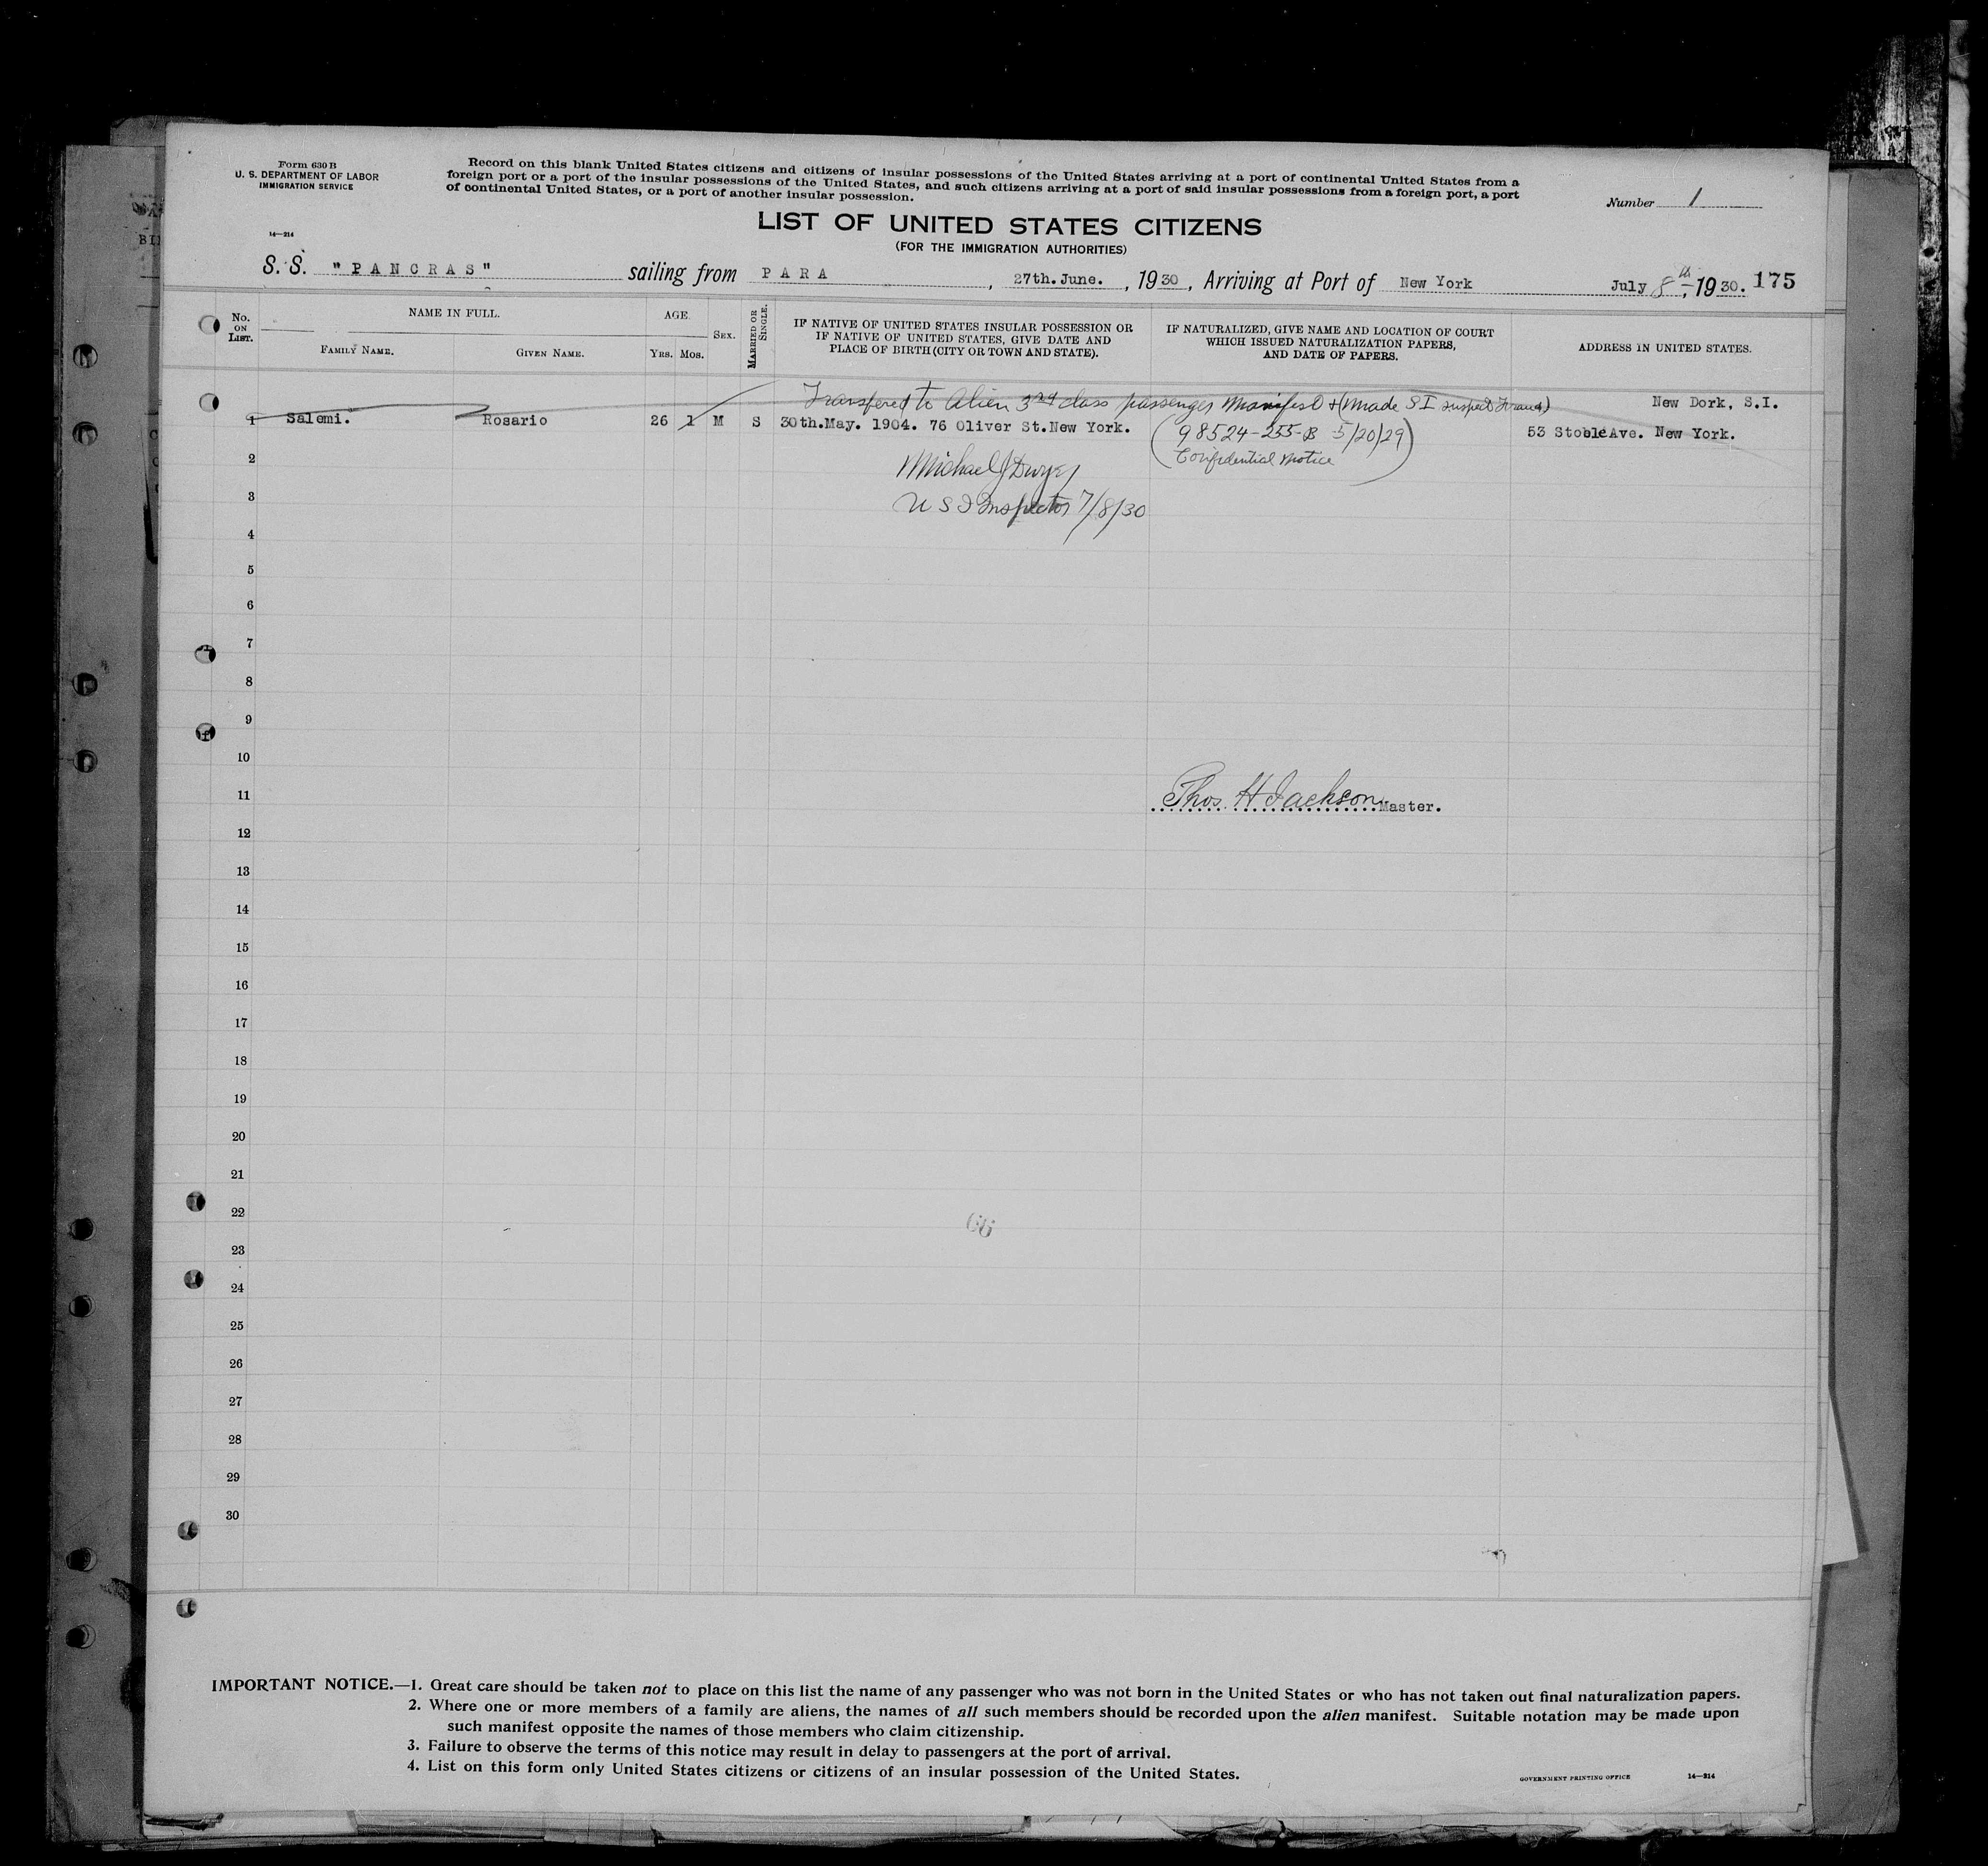 Form 630 B
U. S. DEPARTMENT OF LABOR
IMMIGRATION SERVICE
14—214
Record on this blank United States citizens and citizens of insular possessions of the United States arriving at a port of continental United States from a
foreign port or a port of the insular possessions of the United States, and such citizens arriving at a port of said insular possessions from a foreign port, a port
of continental United States, or a port of another insular possession.
Number 1
LIST OF UNITED STATES CITIZENS
(FOR THE IMMIGRATION AUTHORITIES)
S. S. "PANCRAS" sailing from PARA, 27th.June., 1930, Arriving at Port of New York July 8th, 1930. 175
No. ON LIST.
NAME IN FULL.
FAMILY NAME.
GIVEN NAME.
AGE.
YRS. MOS.
SEX.
MARRIED OR SINGLE.
IF NATIVE OF UNITED STATES INSULAR POSSESSION OR
IF NATIVE OF UNITED STATES, GIVE DATE AND
PLACE OF BIRTH (CITY OR TOWN AND STATE).
IF NATURALIZED, GIVE NAME AND LOCATION OF COURT
WHICH ISSUED NATURALIZATION PAPERS,
AND DATE OF PAPERS.
ADDRESS IN UNITED STATES.
Transfered to Alien 3rd class passenger Manifest & (Made S I suspect Fraud)
New Dork, S.I.
1 Salemi. Rosario 26 1 M S 30th.May. 1904. 76 Oliver St.New York.
53 Ave. New York.
(98524-255-B 5/20/29)
Confidential Notice
Michael J Dwyer
U S I Inspector 7/8/30
2
3
4
5
6
7
8
9
10
11
Thos. H Jackson Master.
12
13
14
15
16
17
18
19
20
21
22
66
23
24
25
26
27
28
29
30
IMPORTANT NOTICE.—1. Great care should be taken not to place on this list the name of any passenger who was not born in the United States or who has not taken out final naturalization papers.
2. Where one or more members of a family are aliens, the names of all such members should be recorded upon the alien manifest. Suitable notation may be made upon
such manifest opposite the names of those members who claim citizenship.
3. Failure to observe the terms of this notice may result in delay to passengers at the port of arrival.
4. List on this form only United States citizens or citizens of an insular possession of the United States.
GOVERNMENT PRINTING OFFICE 14—214